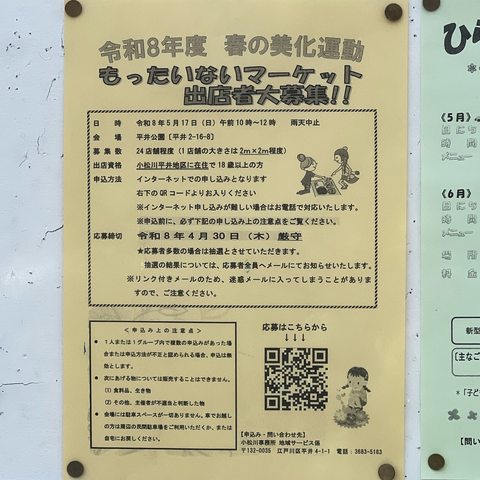 令和8年度 春の美化運動
もったいないマーケット
出店者大募集!!
日 時 令和8年5月17日（日）午前10時〜12時 雨天中止
会 場 平井公園［平井2-16-8］
募 集 数 24店舗程度（1店舗の大きさは2ｍ×2ｍ程度）
出店資格 小松川平井地区に在住で18歳以上の方
申込方法 インターネットでの申し込みとなります
右下のQRコードよりお入りください
※インターネット申し込みが難しい場合はお電話で対応いたします。
※申込前に、必ず下記の申し込み上の注意点をご覧ください。
応募締切 令和8年4月30日（木）厳守
★応募者多数の場合は抽選とさせていただきます。
抽選の結果については、応募者全員へメールにてお知らせいたします。
※リンク付きメールのため、迷惑メールに入ってしまうことがありま
すので、ご注意ください。
＜申込み上の注意点＞
● 1人または1グループ内で複数の申込みがあった場
合または申込方法が不正と認められる場合、申込は無
効とします。
● 次にあげる物については販売することはできません。
(1) 食料品、生き物
(2) その他、主催者が不適当と判断した物
● 会場には駐車スペースが一切ありません。車でお越し
の方は周辺の民間駐車場をご利用いただくか、または
自宅にお戻しください。
応募はこちらから
↓↓↓
【申込み・問い合わせ先】
小松川事務所 地域サービス係
〒132-0035 江戸川区平井4-1-1 電話：3683-5183
ひら
《5月》
日にち
時 間
メニュー
《6月》
日にち
時 間
メニュー
場 所
料 金
新型
【主なご
*「子ども
【問い